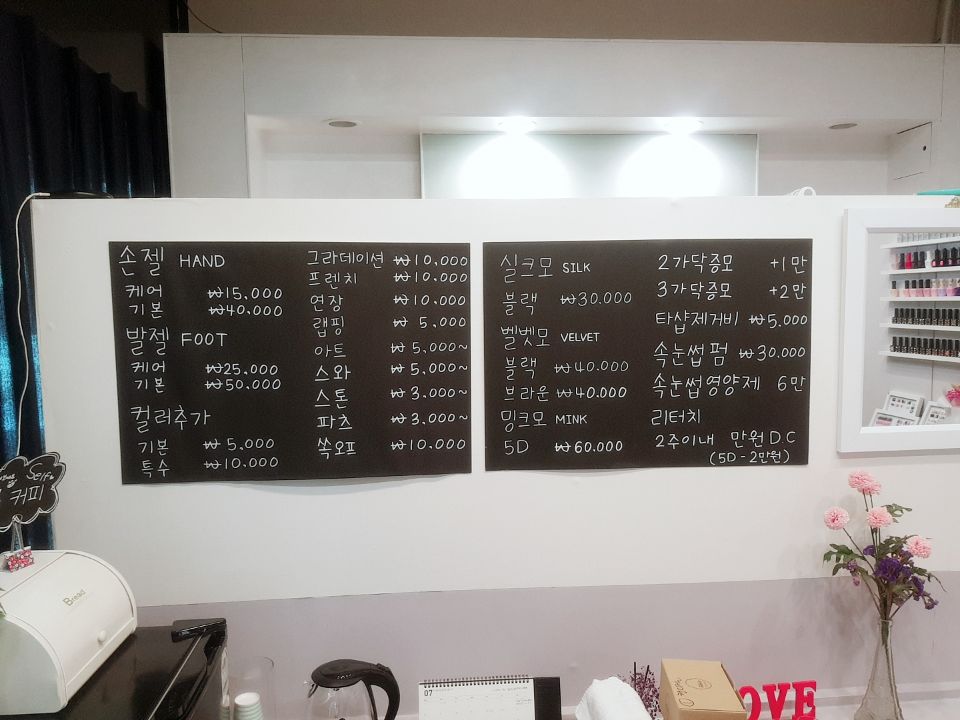 손젤 HAND
케어 ₩15,000
기본 ₩40,000
발젤 FOOT
케어 ₩25,000
기본 ₩50,000
컬러추가
기본 ₩5,000
특수 ₩10,000
그라데이션 ₩10,000
프렌치 ₩10,000
연장 ₩10,000
랩핑 ₩5,000
아트 ₩5,000~
스와 ₩5,000~
스톤 ₩3,000~
파츠 ₩3,000~
쏙오프 ₩10,000
실크모 SILK
블랙 ₩30,000
벨벳모 VELVET
블랙 ₩40,000
브라운 ₩40,000
밍크모 MINK
5D ₩60,000
2가닥증모 +1만
3가닥증모 +2만
타샵제거비 ₩5,000
속눈썹펌 ₩30,000
속눈썹영양제 6만
리터치
2주이내 만원DC
(5D-2만원)
Self
커피
Bread
07
OVE